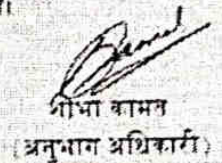 शोभा कामत
(अनुभाग अधिकारी)